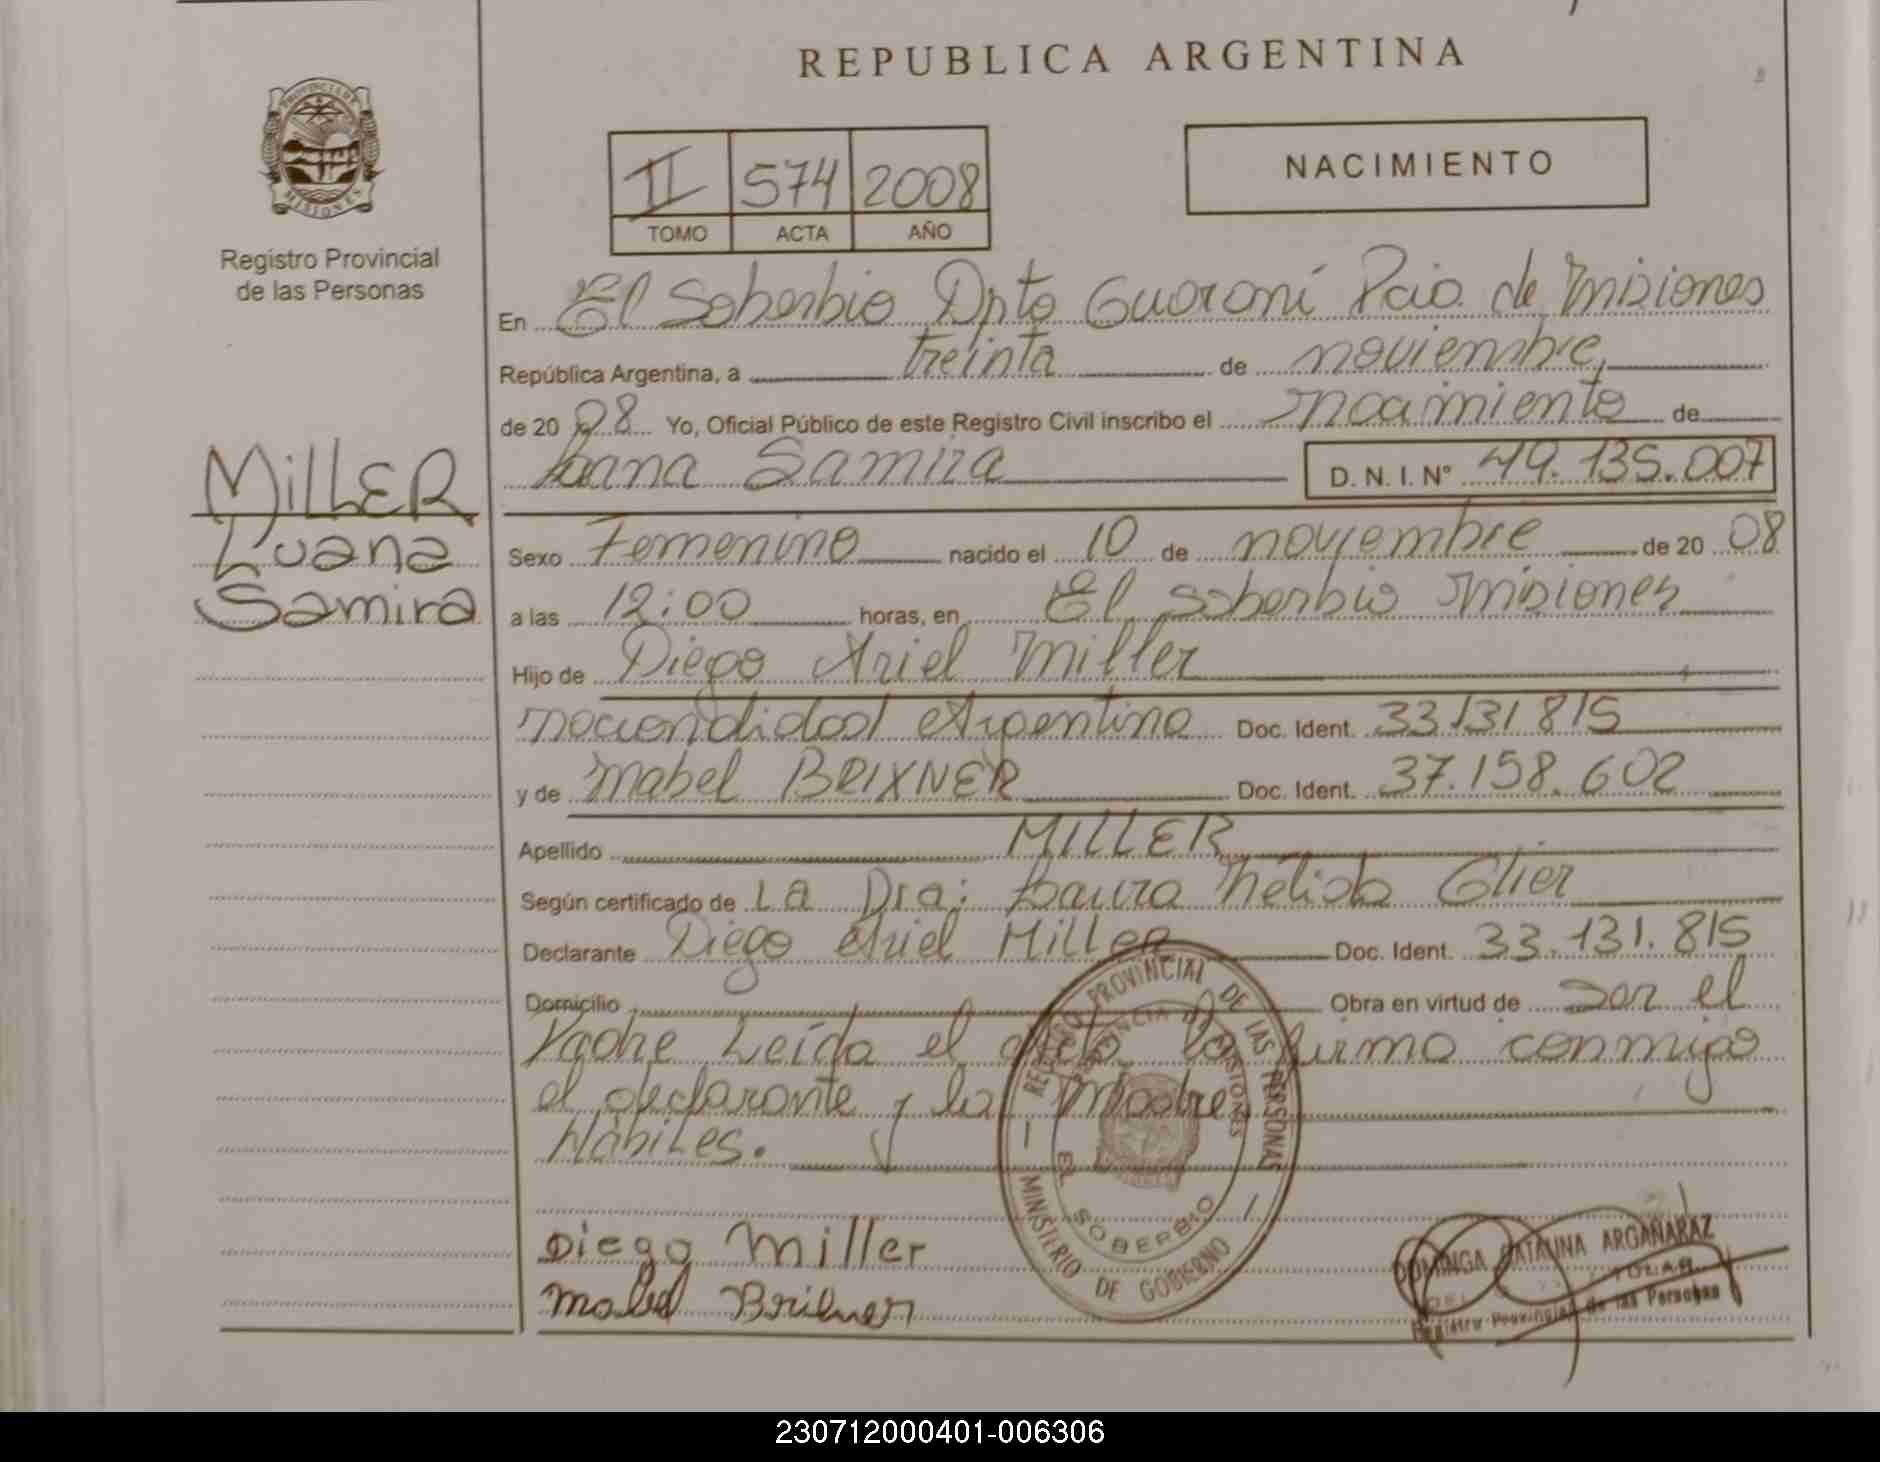 REPUBLICA ARGENTINA
PROVINCIA DE
MISIONES
Registro Provincial
de las Personas
II 574 2008
TOMO ACTA AÑO
NACIMIENTO
En El Soberbio Dpto Guaraní Pcia de Misiones
República Argentina, a treinta de noviembre
de 2008 Yo, Oficial Público de este Registro Civil inscribo el nacimiento de
Luana Samira D. N. I. N° 49.135.007
MILLER
Luana
Samira
Sexo Femenino nacido el 10 de noviembre de 20 08
a las 12:00 horas, en El Soberbio Misiones
Hijo de Diego Ariel Miller
nacionalidad Argentina Doc. Ident. 33.131.815
y de Mabel BRIXNER Doc. Ident. 37.158.602
Apellido MILLER
Según certificado de LA Dra: Laura Nélida
Declarante Diego Ariel Miller Doc. Ident. 33.131.815
Domicilio Obra en virtud de ser el
Padre Leída el acta la firma conmigo
el declarante y la Madre
Hábiles.
REGISTRO PROVINCIAL DE LAS PERSONAS
PROVINCIA DE MISIONES
EL SOBERBIO
MINISTERIO DE GOBIERNO
Diego Miller
Mabel
DOMINGA CATALINA ARGAÑARAZ
Registro Provincial de las Personas
230712000401-006306